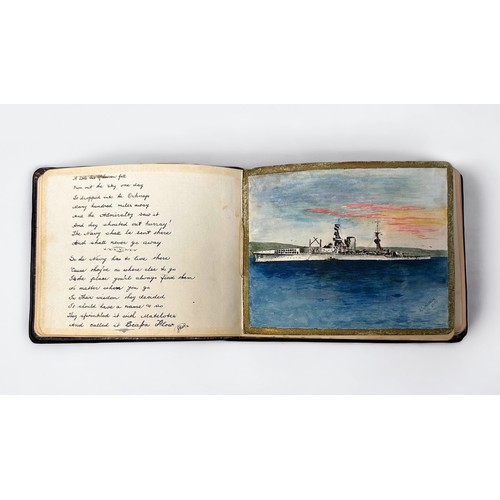 A little bit of heaven fell
From out the sky one day
It dropped into the Orkneys
Many hundred miles away
And the Admiralty saw it
And they shouted out hurray!
The Navy shall be sent there
And shall never go away
So the Navy has to live there
'Cause they've no where else to go
It's the place you'll always find them
No matter where you go
In their wisdom they decided
It should have a name so
They sprinkled it with Matelotes
And called it Scapa Flow